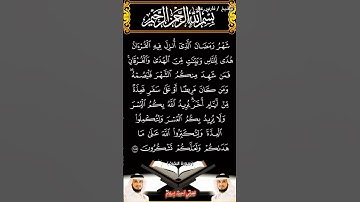 بسم الله الرحمن الرحيم
شَهْرُ رَمَضَانَ الَّذِي أُنزِلَ فِيهِ الْقُرْآنُ
هُدًى لِلنَّاسِ وَبَيِّنَاتٍ مِنَ الْهُدَى وَالْفُرْقَانِ
فَمَن شَهِدَ مِنكُمُ الشَّهْرَ فَلْيَصُمْهُ
وَمَن كَانَ مَرِيضًا أَوْ عَلَى سَفَرٍ فَعِدَّةٌ
مِنْ أَيَّامٍ أُخَرَ يُرِيدُ اللَّهُ بِكُمُ الْيُسْرَ
وَلَا يُرِيدُ بِكُمُ الْعُسْرَ وَلِتُكْمِلُوا
الْعِدَّةَ وَلِتُكَبِّرُوا اللَّهَ عَلَى مَا
هَدَاكُمْ وَلَعَلَّكُمْ تَشْكُرُونَ